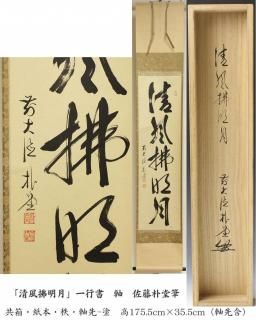 風拂明
前大徳朴堂
清風拂明月
前大徳朴堂
清風拂明月
前大徳朴堂
「清風拂明月」一行書　軸　佐藤朴堂筆
共箱・紙本・秩・軸先-塗　高175.5cm×35.5cm（軸先含）